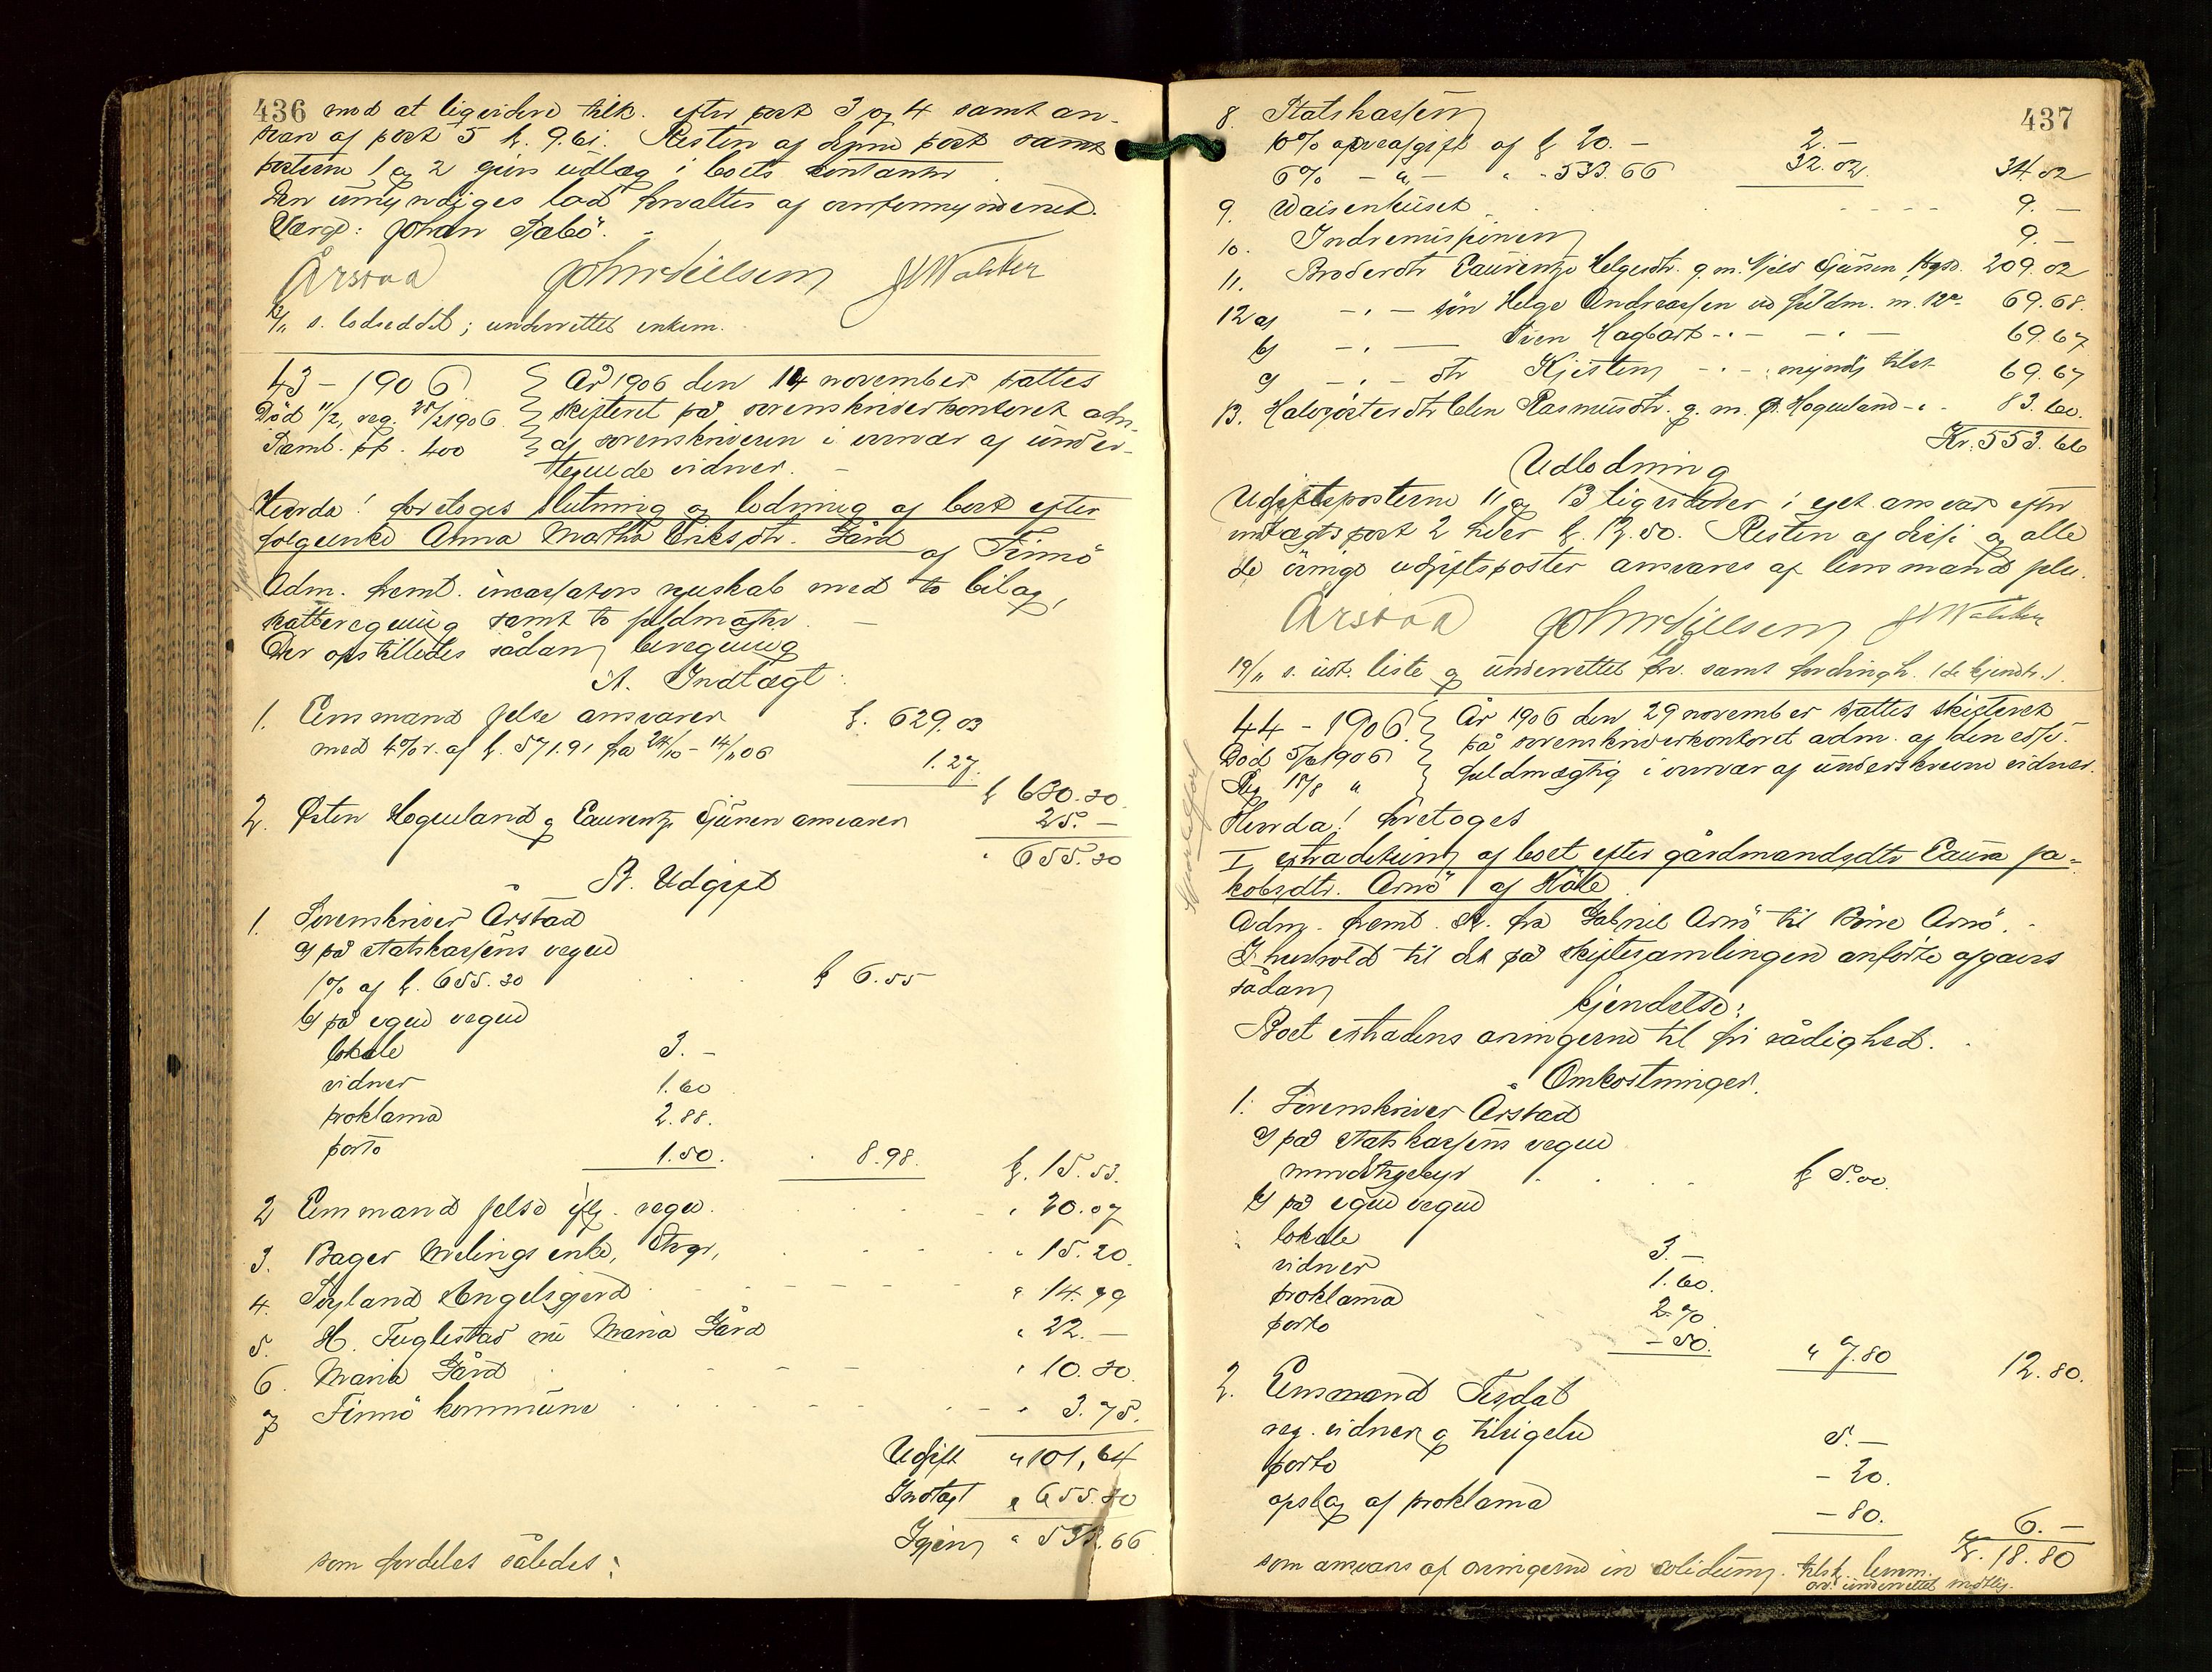 436 mod at liqvidere tilk. efter post 3 og 4 samt an-
svar af post 5 k. 9.61. Resten af denne post samt
posterne 1 og 2 givs udlæg i boets kontanter
Den umyndiges lod forvaltes af overformynderiet.
Værge: Johan Sæbö.
Årstad John Nielsen
12/11 s. lodseddel; underrettet enken.
43 - 1906 År 1906 den 14 november sattes
Död 11/2, reg. 25/2 1906 skifteret på sorenskriverkontoret adm.
Saml. pr. 400 af sorenskriveren i nærvær af under-
tegnede vidner.
Hvorda! foretoges slutning og lodning af boet efter
folgeenke Anna Martha Eriksdtr. Gård af Finnö
Adm. fremt. incassators regnskab med to bilag,
skatteregning samt to fuldmagter.
Der opstilledes sådan beregning
A. Indtægt
1. Lensmand Jelse ansvarer k. 629.03
med 4% r. af k. 571.91 fra 24/10 - 14/11 06 1.27
k 630.30
2. Østen Hogueland og Laurentze Gjûnen ansvarer 25.-
655.30
B. Udgift
1. Sorenskriver Årstad
a) på statskassens vegne
1% af k. 655.30 k 6.55
b) på egne vegne
lokale 3.-
vidner 1.60
proklama 2.88.
porto 1.50. 8.98. k. 15.53.
2 Lensmand Jelse iflg. regn. 20.07
3. Bager Melings enke, Stvgr, 15.20
4. Søyland Engelsgjerd 14.79
5. H. Fuglestad m/ Maria Gård 22.-
6. Maria Gård 10.30
7 Finnö kommune 3.75.
Udgift 101,64
Indtægt 655.30
Igjen 553.66
som fordeles således:
437
8. Statskassen
10% arveafgift af k 20.- 2.-
6% - " - " - 533.66 32.02. 34.02
9. Waisenhuset 9.-
10. Indremissionen 9.-
11. Broderdtr Laurentze Helgesdtr. g. m. Njels Gjûnen, 209.02
12 a) - " - sön Helge Andreassen 69.68.
b) - " - Sven Hagbart - " - 69.67
c) - " - dtr Kjisten - " - myndig tilst 69.67
13. Halvsösterdtr Elen Rasmusdtr. g. m. Ø. Hogueland - " - 83.60.
Kr. 553.66
Udlodning
Udgiftsposterne 11 og 13 liqvideres i eget ansvar efter
indtægtspost 2 hver k. 12.50. Resten af disse og alle
de övrige udgiftsposter ansvares af lensmand Jelse.
Årstad John Nielsen
19/11 s. udst. liste og underrettet arv. samt fordringh. (de kjendte.)
44 - 1906. År 1906 den 29 november sattes skifteret
Död 5/6 1906 på sorenskriverkontoret adm. af den edsv.
Reg 18/8 " fuldmægtig i nærvær af underskrevne vidner.
Hvorda! foretoges
I extradering af boet efter gårdmandsdtr Laura Ja-
kobsdtr. Arnö af Håle
Adm. fremt. Sk. fra Gabriel Arnö til Böie Arnö.
I henhold til det på skiftesamlingen anförte afgaves
sådan kjendelse:
Boet extraderes arvingerne til fri rådighed.
Omkostninger.
1. Sorenskriver Årstad
a) på statskassens vegne
mindstegebyr k 5.00.
b) på egne vegne
lokale 3.-
vidner 1.60.
proklama 2.70.
porto - 50. " 7.80 12.80.
2. Lensmand Tisdal
reg. vidner og tilsigelse 5.-
porto - 20.
opslag af proklama - 80. 6.-
k. 18.80
som ansvares af arvingerne in solidum. tilsk. lensm.
arv. underrettet mdtlig.